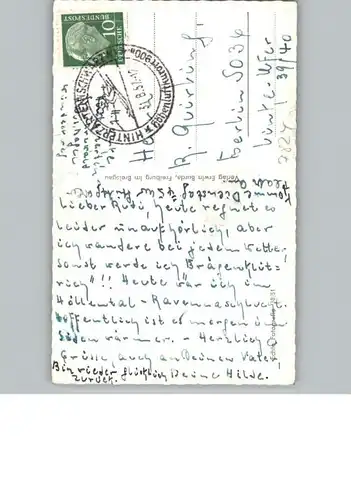 10
DEUTSCHE
BUNDESPOST
HINTERZARTEN (SCHWARZW)
Höhenluftkurort 900m
Herrn
R. Quiring
Berlin SO36
39/40
Verlag Erwin Burda, Freiburg im Breisgau
Komme Dienstag
Lieber Rudi, heute regnet es
leider unaufhörlich, aber
ich wandere bei jedem Wetter,
sonst werde ich
"!! Heute war ich im
Höllental - Ravennaschlucht.
Hoffentlich ist es morgen im
Süden wärmer. - Herzliche
Grüsse auch an Deinen Vater
Deine Hilde.
Bin wieder glücklich
zurück.